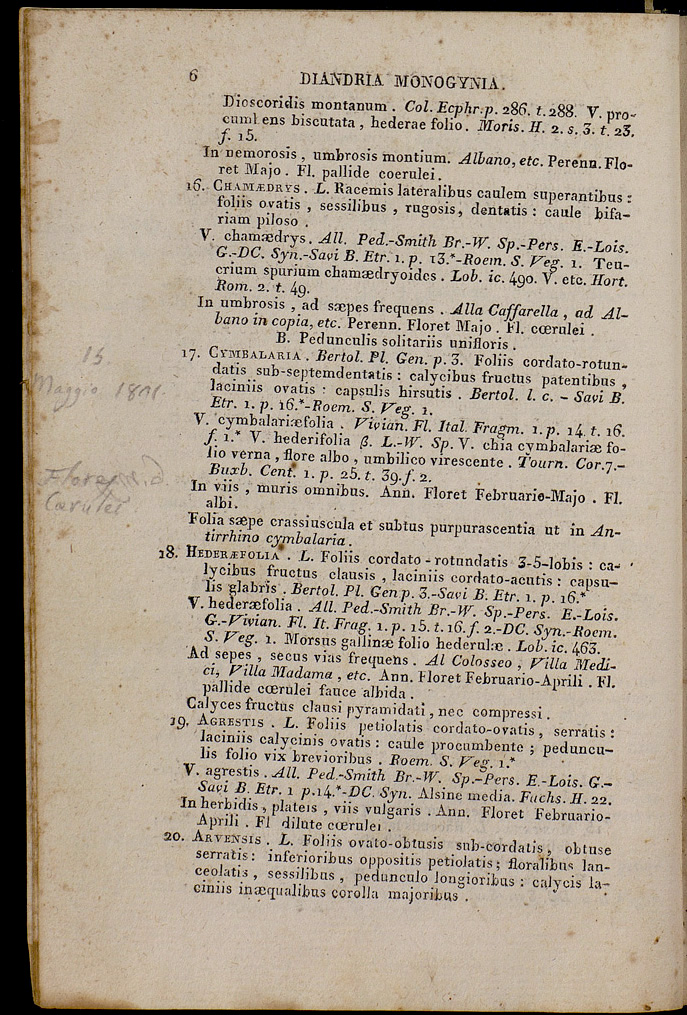 6 DIANDRIA MONOGYNIA.
Dioscoridis montanum. Col. Ecphr. p. 286. t. 288. V. pro-
cumbens biscutata, hederae folio. Moris. H. 2. s. 3. t. 23.
f. 15.
In nemorosis, umbrosis montium. Albano, etc. Perenn. Flo-
ret Majo. Fl. pallide coerulei.
16. CHAMÆDRYS. L. Racemis lateralibus caulem superantibus:
foliis ovatis, sessilibus, rugosis, dentatis: caule bifa-
riam piloso.
V. chamædrys. All. Ped.-Smith Br.-W. Sp.-Pers. E.-Lois.
G.-DC. Syn.-Savi B. Etr. 1. p. 13.*-Roem. S. Veg. 1. Teu-
crium spurium chamædryoides. Lob. ic. 490. V. etc. Hort.
Rom. 2. t. 49.
In umbrosis, ad sæpes frequens. Alla Caffarella, ad Al-
bano in copia, etc. Perenn. Floret Majo. Fl. cœrulei.
B. Pedunculis solitariis unifloris.
17. CYMBALARIA. Bertol. Pl. Gen. p. 3. Foliis cordato-rotun-
datis sub-septemdentatis: calycibus fructus patentibus,
laciniis ovatis: capsulis hirsutis. Bertol. l. c. - Savi B.
Etr. 1. p. 16.*-Roem. S. Veg. 1.
V. cymbalariæfolia. Vivian. Fl. Ital. Fragm. 1. p. 14. t. 16.
f. 1.* V. hederifolia β. L.-W. Sp. V. chia cymbalariæ fo-
lio verna, flore albo, umbilico virescente. Tourn. Cor. 7.-
Buxb. Cent. 1. p. 25. t. 39. f. 2.
In viis, muris omnibus. Ann. Floret Februario-Majo. Fl.
albi.
Folia sæpe crassiuscula et subtus purpurascentia ut in An-
tirrhino cymbalaria.
18. HEDERÆFOLIA. L. Foliis cordato-rotundatis 3-5-lobis: ca-
lycibus fructus clausis, laciniis cordato-acutis: capsu-
lis glabris. Bertol. Pl. Gen p. 3.-Savi B. Etr. 1. p. 16.*
V. hederæfolia. All. Ped.-Smith Br.-W. Sp.-Pers. E.-Lois.
G.-Vivian. Fl. It. Frag. 1. p. 15. t. 16. f. 2.-DC. Syn.-Roem.
S. Veg. 1. Morsus gallinæ folio hederulæ. Lob. ic. 463.
Ad sepes, secus vias frequens. Al Colosseo, Villa Medi-
ci, Villa Madama, etc. Ann. Floret Februario-Aprili. Fl.
pallide cœrulei fauce albida.
Calyces fructus clausi pyramidati, nec compressi.
19. AGRESTIS. L. Foliis petiolatis cordato-ovatis, serratis:
laciniis calycinis ovatis: caule procumbente; peduncu-
lis folio vix brevioribus. Roem. S. Veg. 1.*
V. agrestis. All. Ped.-Smith Br.-W. Sp.-Pers. E.-Lois. G.-
Savi B. Etr. 1 p. 14.*-DC. Syn. Alsine media. Fuchs. H. 22.
In herbidis, plateis, viis vulgaris. Ann. Floret Februario-
Aprili. Fl dilute cœrulei.
20. ARVENSIS. L. Foliis ovato-obtusis sub-cordatis, obtuse
serratis: inferioribus oppositis petiolatis; floralibus lan-
ceolatis, sessilibus, pedunculo longioribus: calycis la-
ciniis inæqualibus corolla majoribus.
15
Maggio
Flores
Cærulei